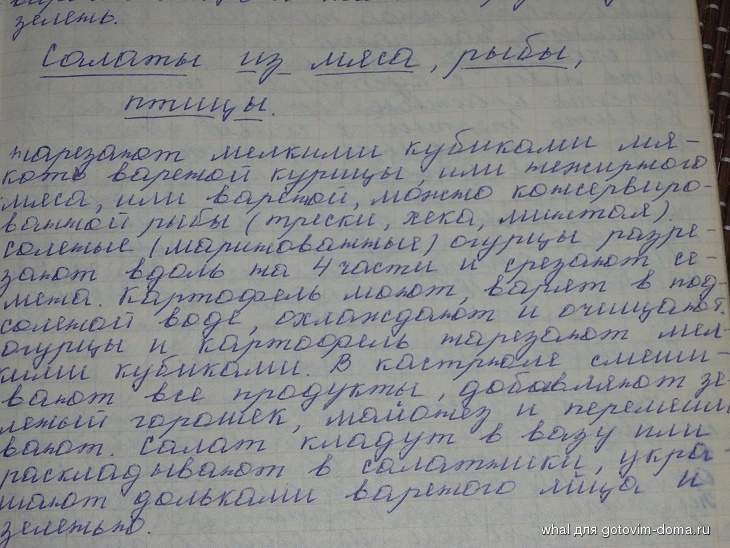 зелень.
Салаты из мяса, рыбы,
птицы.
Нарезают мелкими кубиками мя-
коть вареной курицы или нежирного
мяса, или вареной, можно консервиро-
ванной рыбы (трески, хека, минтая).
Соленые (маринованные) огурцы разре-
зают вдоль на 4 части и срезают се-
мена. Картофель моют, варят в под-
соленой воде, охлаждают и очищают.
Огурцы и картофель нарезают мел-
кими кубиками. В кастрюле смеши-
вают все продукты, добавляют зе-
леный горошек, майонез и перемеши
вают. Салат кладут в вазу или
раскладывают в салатники, укра
шают дольками вареного яйца и
зеленью.
whal для gotovim-doma.ru